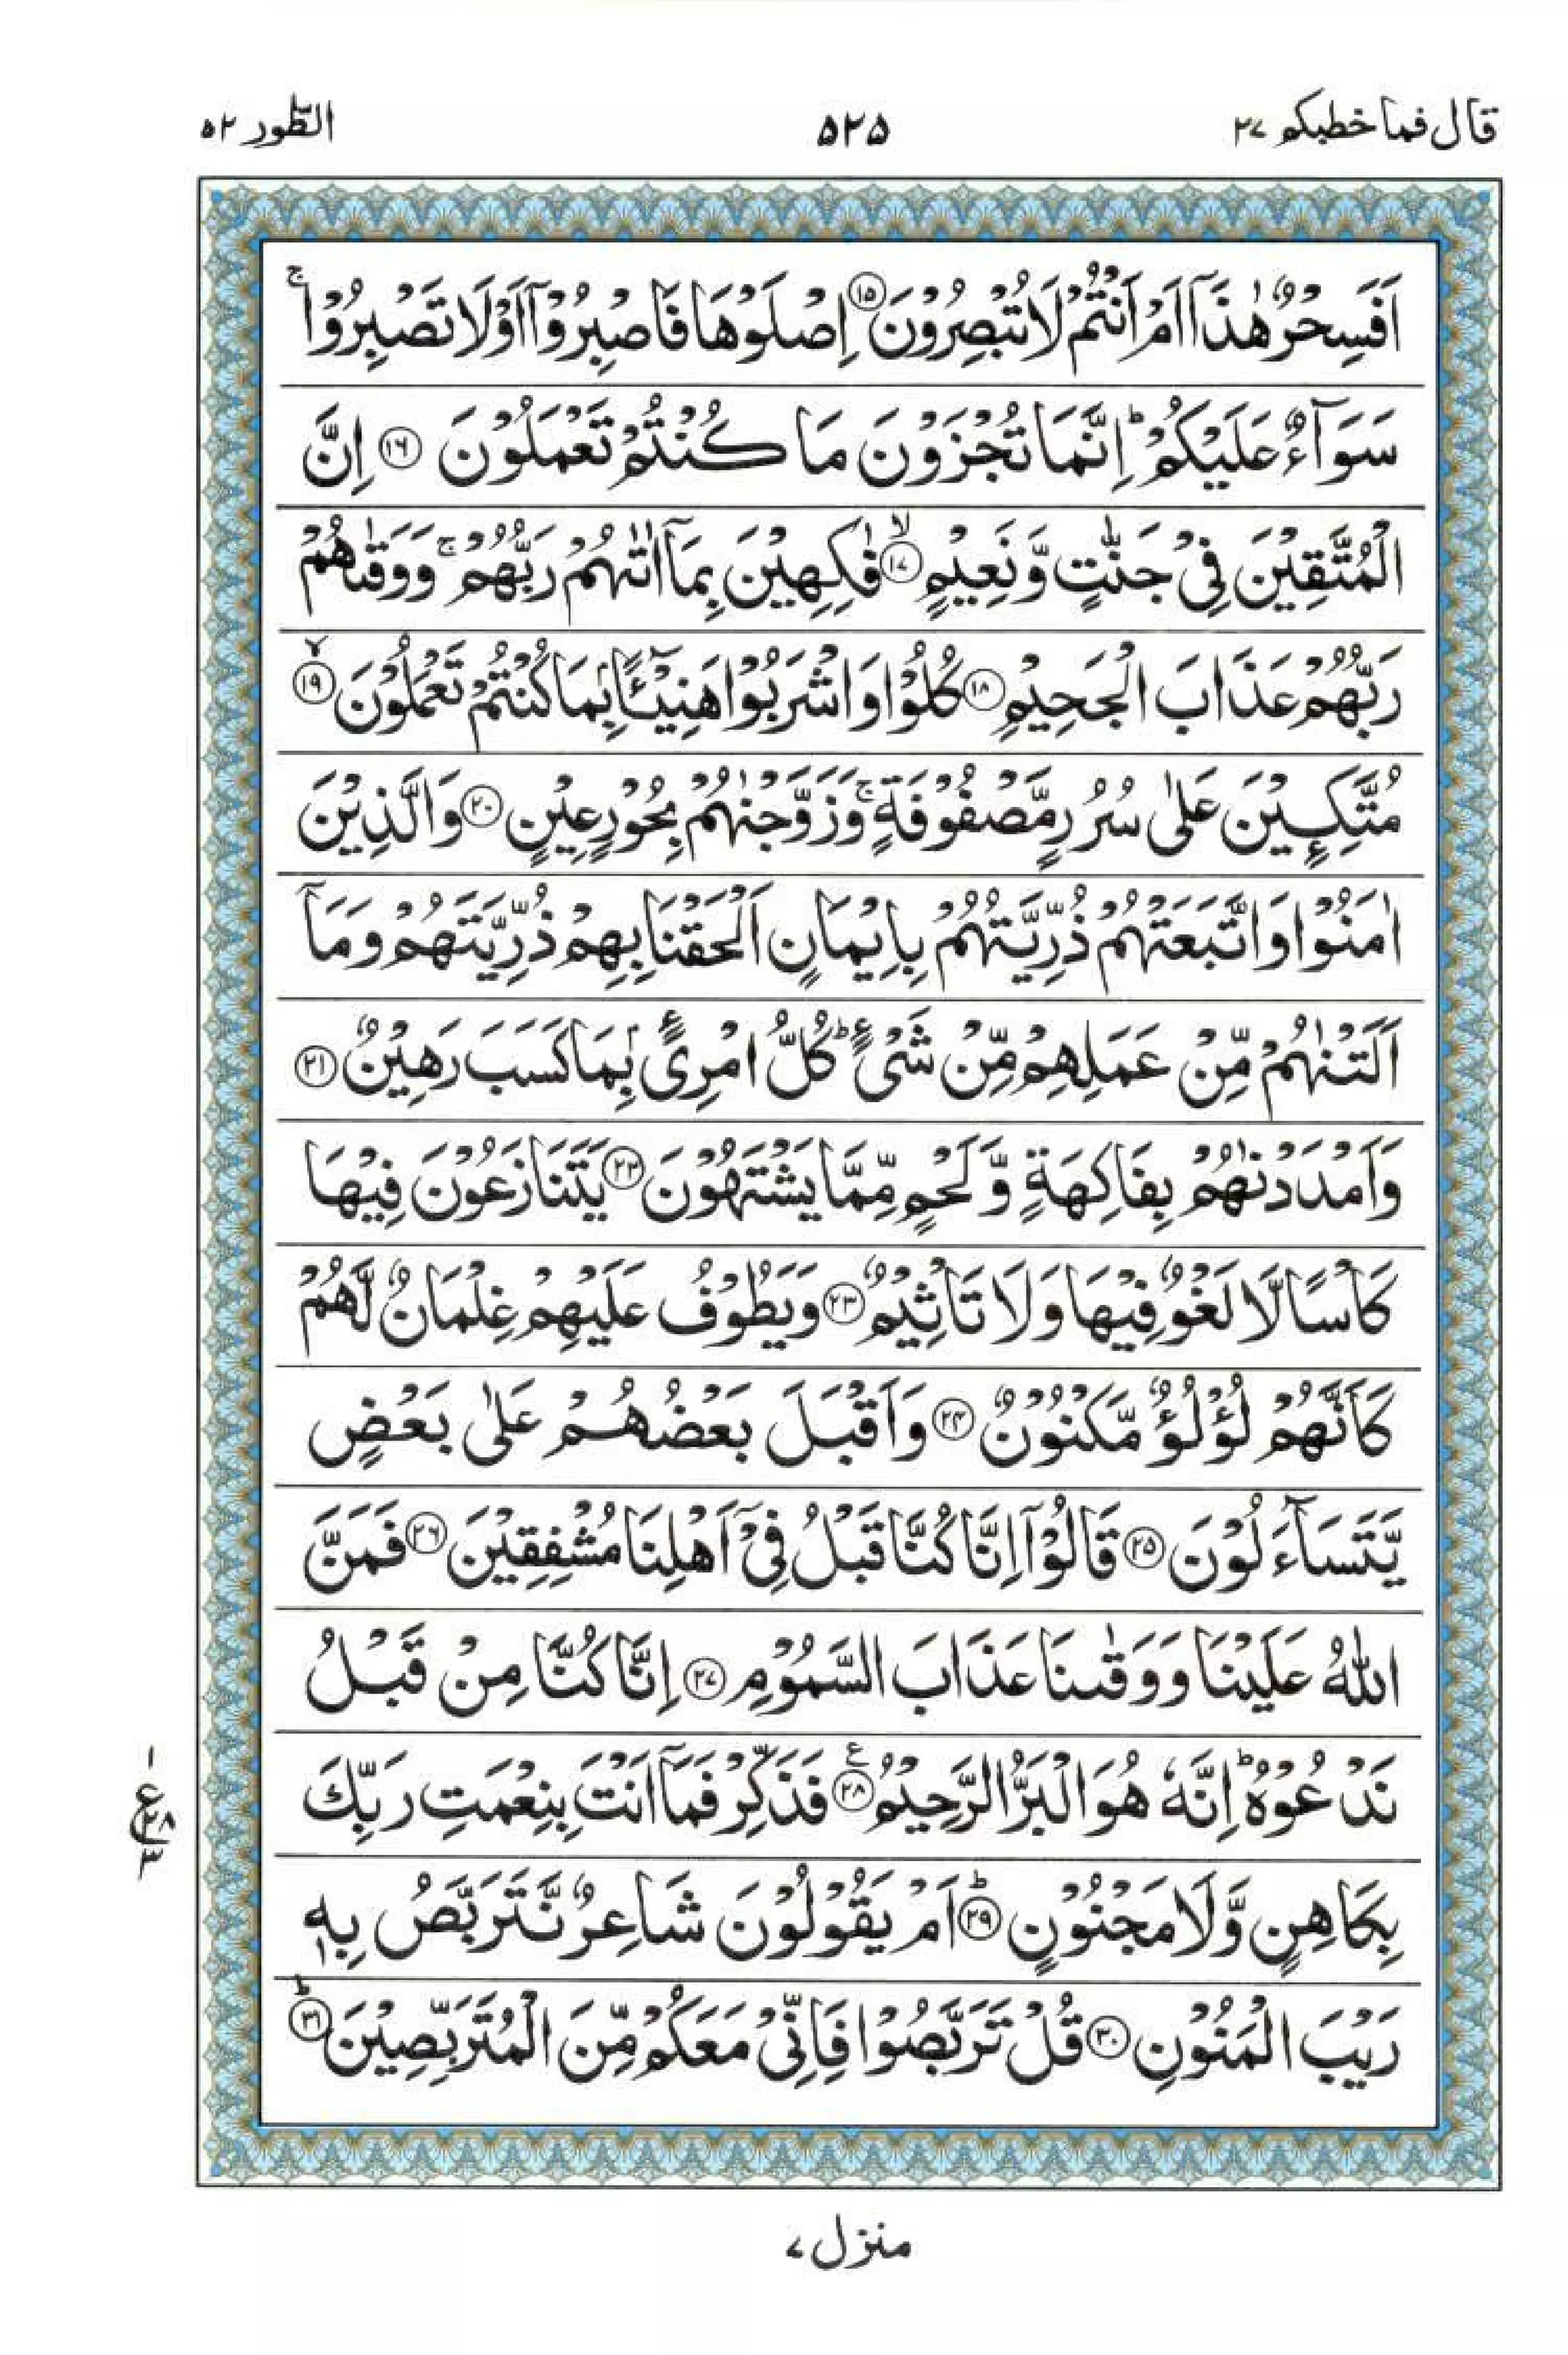 قال فما خطبكم ۲۷
۵۲۵
الطور ۵۲
اَفَسِحْرٌ هٰذَاۤ اَمْ اَنْتُمْ لَا تُبْصِرُوْنَ ﴿۱۵﴾ اِصْلَوْهَا فَاصْبِرُوْۤا اَوْ لَا تَصْبِرُوْا ۚ
سَوَآءٌ عَلَيْكُمْ ؕ اِنَّمَا تُجْزَوْنَ مَا كُنْتُمْ تَعْمَلُوْنَ ﴿۱۶﴾ اِنَّ
الْمُتَّقِيْنَ فِيْ جَنّٰتٍ وَّ نَعِيْمٍ ۙ﴿۱۷﴾ فٰكِهِيْنَ بِمَاۤ اٰتٰىهُمْ رَبُّهُمْ ۚ وَ وَقٰىهُمْ
رَبُّهُمْ عَذَابَ الْجَحِيْمِ ﴿۱۸﴾ كُلُوْا وَ اشْرَبُوْا هَنِيْٓـًٔۢا بِمَا كُنْتُمْ تَعْمَلُوْنَ ۙ﴿۱۹﴾
مُتَّكِـِٕيْنَ عَلٰى سُرُرٍ مَّصْفُوْفَةٍ ۚ وَ زَوَّجْنٰهُمْ بِحُوْرٍ عِيْنٍ ﴿۲۰﴾ وَ الَّذِيْنَ
اٰمَنُوْا وَ اتَّبَعَتْهُمْ ذُرِّيَّتُهُمْ بِاِيْمَانٍ اَلْحَقْنَا بِهِمْ ذُرِّيَّتَهُمْ وَ مَاۤ
اَلَتْنٰهُمْ مِّنْ عَمَلِهِمْ مِّنْ شَيْءٍ ؕ كُلُّ امْرِئٍۭ بِمَا كَسَبَ رَهِيْنٌ ﴿۲۱﴾
وَ اَمْدَدْنٰهُمْ بِفَاكِهَةٍ وَّ لَحْمٍ مِّمَّا يَشْتَهُوْنَ ﴿۲۲﴾ يَتَنَازَعُوْنَ فِيْهَا
كَاْسًا لَّا لَغْوٌ فِيْهَا وَ لَا تَاْثِيْمٌ ﴿۲۳﴾ وَ يَطُوْفُ عَلَيْهِمْ غِلْمَانٌ لَّهُمْ
كَاَنَّهُمْ لُؤْلُؤٌ مَّكْنُوْنٌ ﴿۲۴﴾ وَ اَقْبَلَ بَعْضُهُمْ عَلٰى بَعْضٍ
يَّتَسَآءَلُوْنَ ﴿۲۵﴾ قَالُوْۤا اِنَّا كُنَّا قَبْلُ فِيْۤ اَهْلِنَا مُشْفِقِيْنَ ﴿۲۶﴾ فَمَنَّ
اللّٰهُ عَلَيْنَا وَ وَقٰىنَا عَذَابَ السَّمُوْمِ ﴿۲۷﴾ اِنَّا كُنَّا مِنْ قَبْلُ
نَدْعُوْهُ ؕ اِنَّهٗ هُوَ الْبَرُّ الرَّحِيْمُ ﴿۲۸﴾ ع فَذَكِّرْ فَمَاۤ اَنْتَ بِنِعْمَتِ رَبِّكَ
بِكَاهِنٍ وَّ لَا مَجْنُوْنٍ ؕ﴿۲۹﴾ اَمْ يَقُوْلُوْنَ شَاعِرٌ نَّتَرَبَّصُ بِهٖ
رَيْبَ الْمَنُوْنِ ﴿۳۰﴾ قُلْ تَرَبَّصُوْا فَاِنِّيْ مَعَكُمْ مِّنَ الْمُتَرَبِّصِيْنَ ؕ﴿۳۱﴾
۱
ع ۲۸
۳
منزل ۷